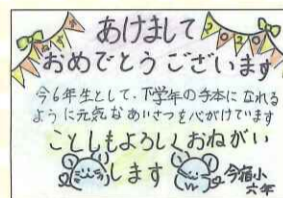 あけまして
おめでとうございます
今6年生として、下学年の手本になれる
ように元気なあいさつを心がけています
ことしもよろしくおねがい
します
今宿小
六年